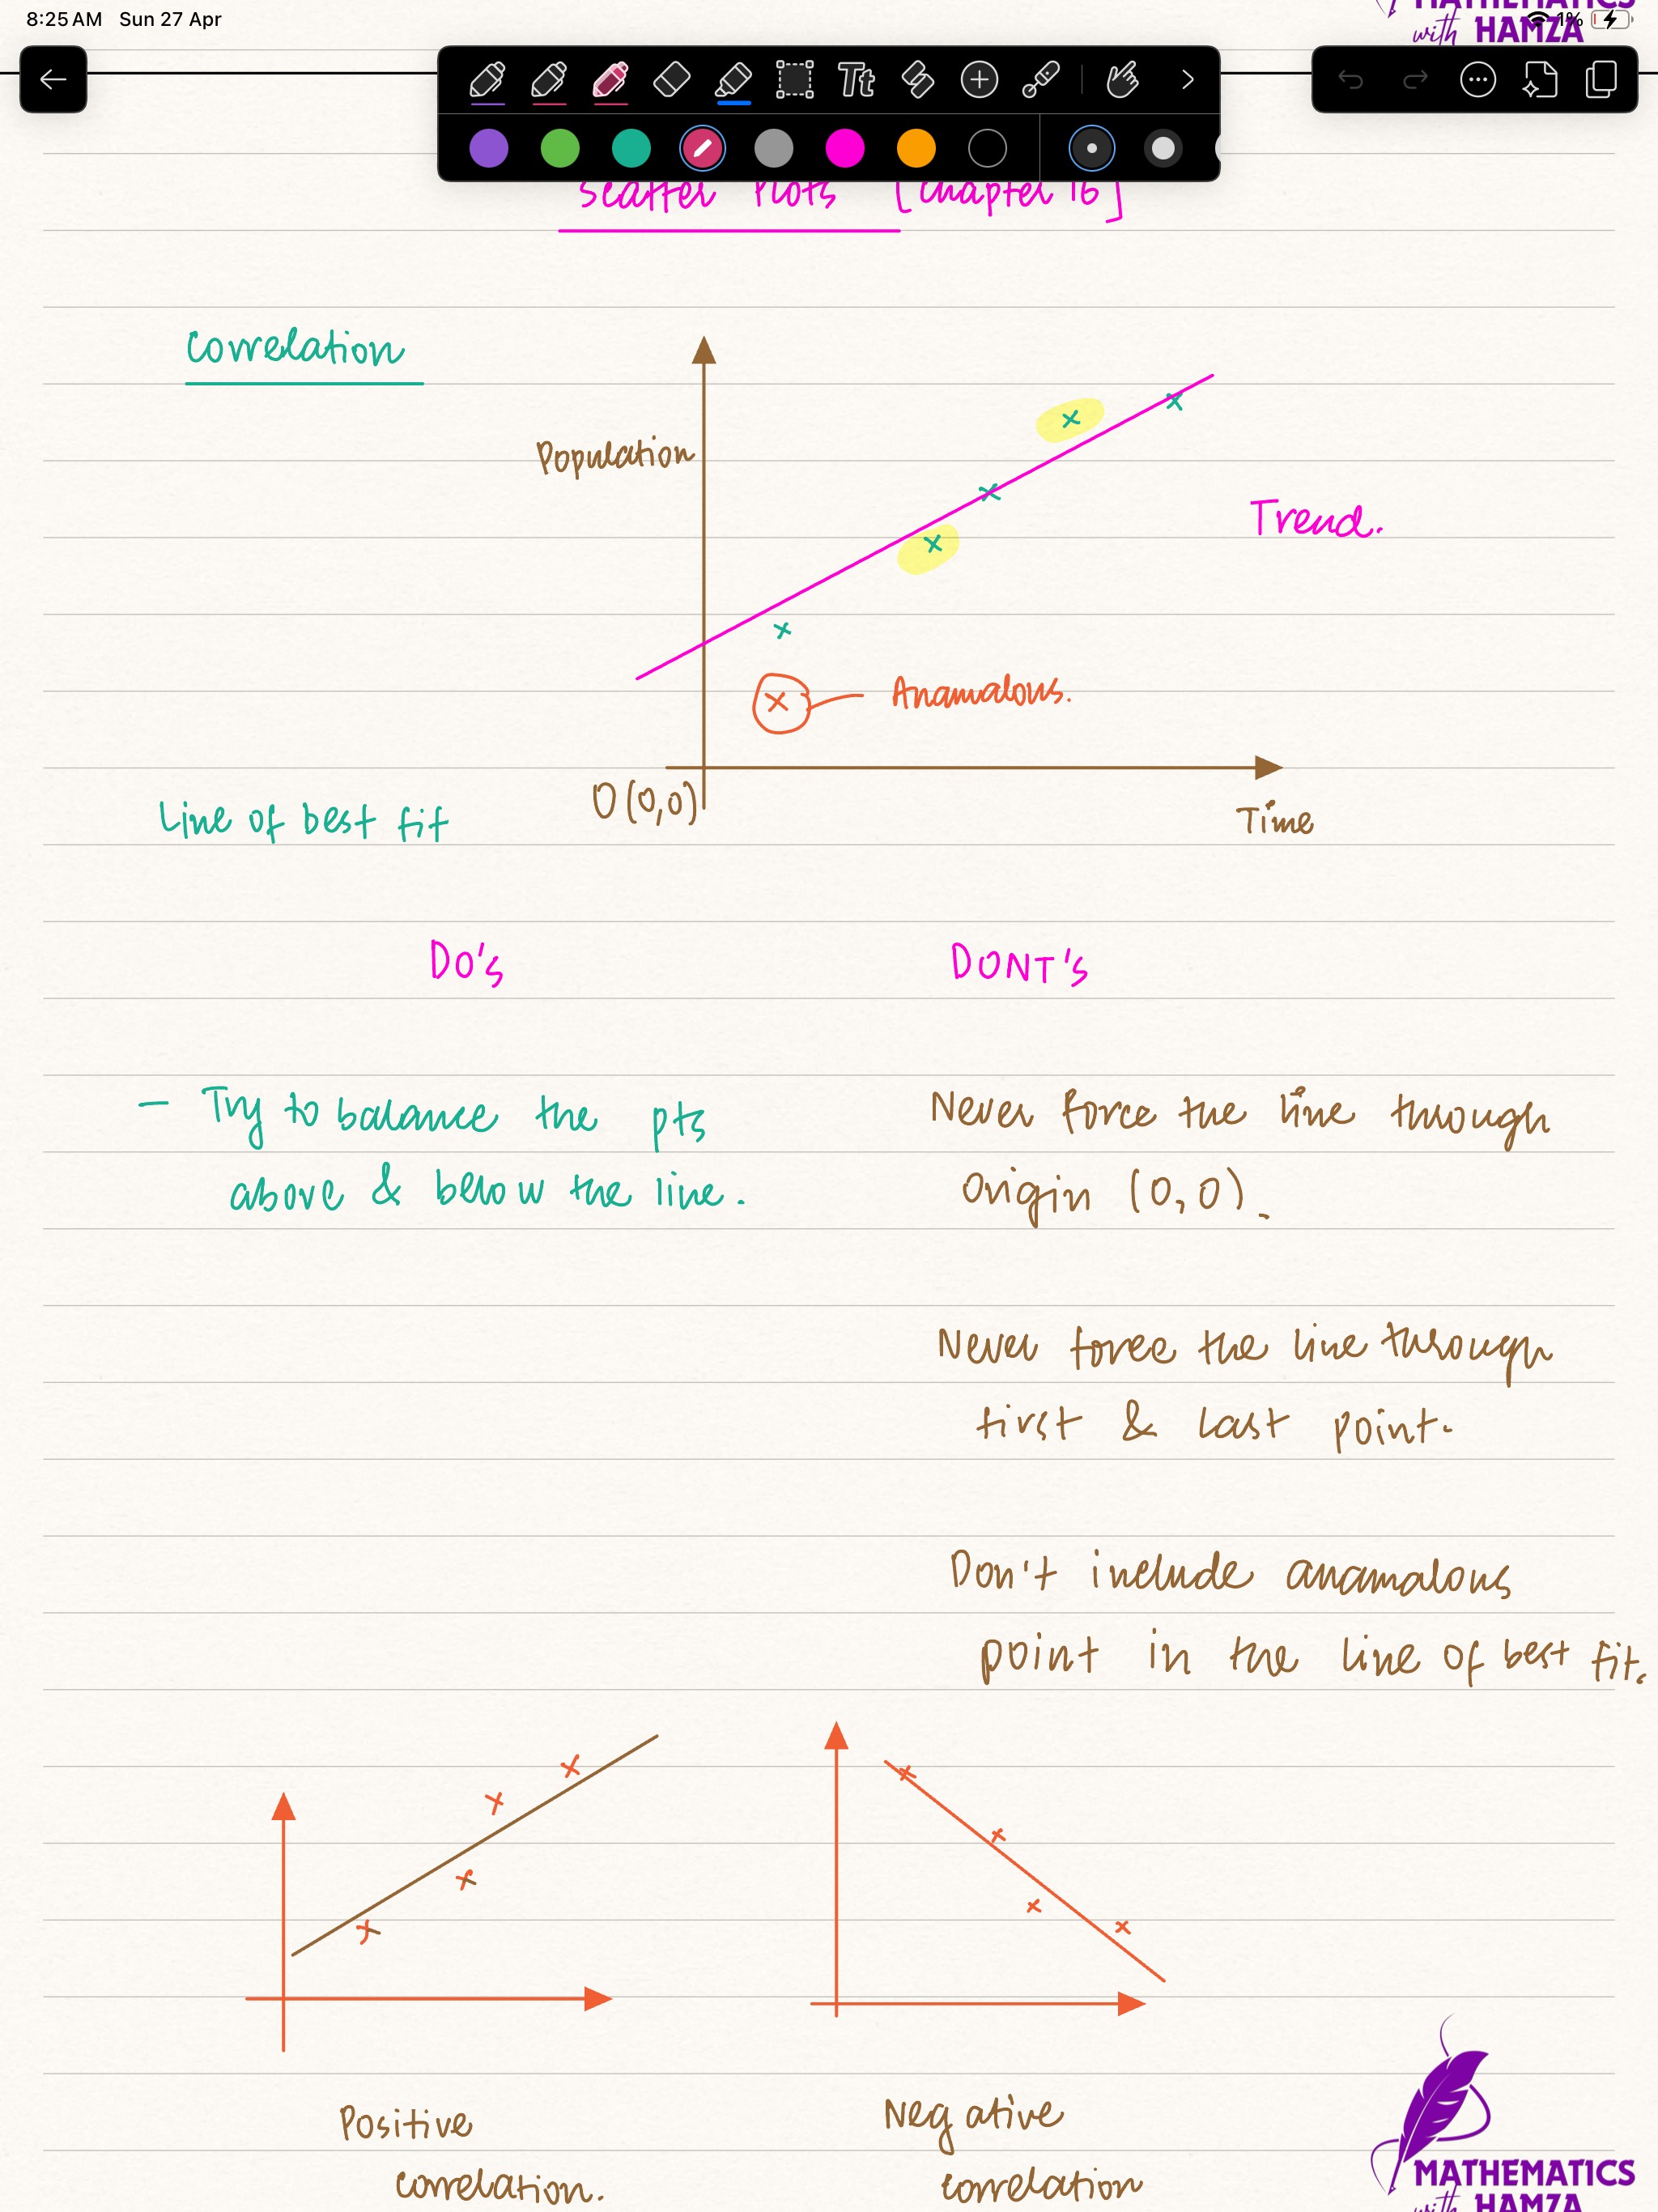 8:25 AM Sun 27 Apr
1%
MATHEMATICS
with HAMZA
Tt
Scatter Plots [Chapter 16]
Correlation
Population
Trend.
Anamalous.
O (0,0)
Time
Line of best fit
DO's
DONT's
– Try to balance the pts
above & below the line.
Never force the line through
origin (0,0).
Never force the line through
first & last point.
Don't include anamalous
point in the line of best fit.
Positive
correlation.
Negative
correlation
MATHEMATICS
with HAMZA